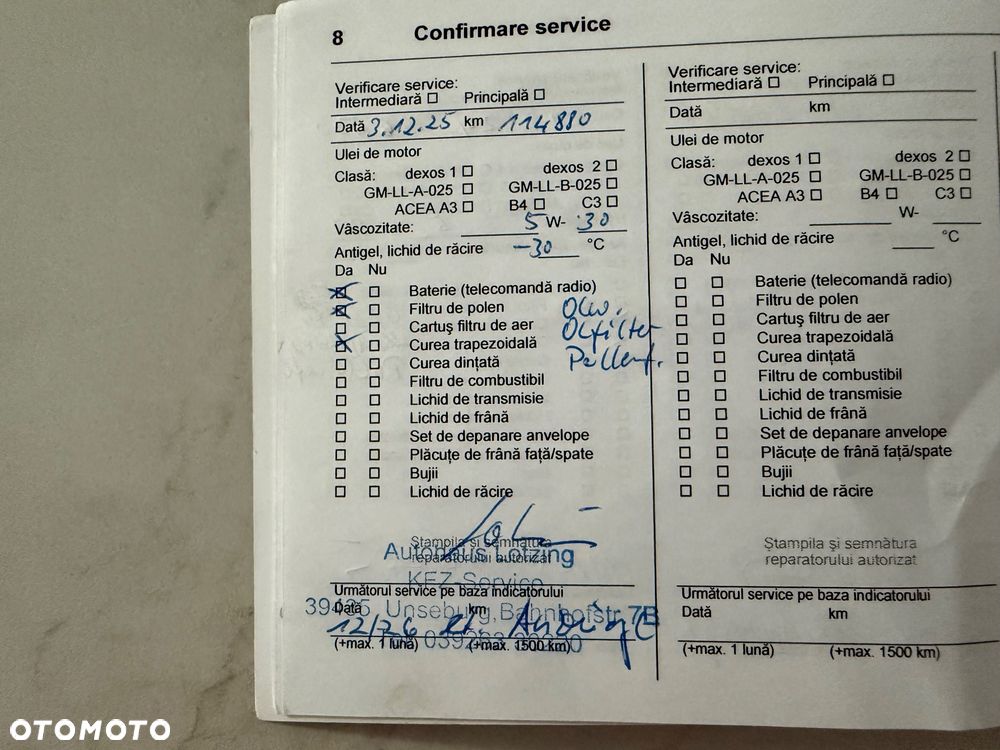 8 Confirmare service
Verificare service:
Intermediară Principală
Dată 3.12.25 km 114880
Ulei de motor
Clasă: dexos 1 dexos 2
GM-LL-A-025 GM-LL-B-025
ACEA A3 B4 C3
Vâscozitate: 5 W- 30
Antigel, lichid de răcire -30 °C
Da Nu
Baterie (telecomandă radio)
Filtru de polen Ölw.
Cartuş filtru de aer Ölfilter
Curea trapezoidală Pollenf.
Curea dinţată
Filtru de combustibil
Lichid de transmisie
Lichid de frână
Set de depanare anvelope
Plăcuţe de frână faţă/spate
Bujii
Lichid de răcire
Ştampila şi semnătura
reparatorului autorizat
Autohaus Lotzing
KFZ-Service
39435 Unseburg, Bahnhofstr. 7B
Următorul service pe baza indicatorului
Dată km
12/26 lt. Anzeige
(+max. 1 lună) (+max. 1500 km)
Verificare service:
Intermediară Principală
Dată km
Ulei de motor
Clasă: dexos 1 dexos 2
GM-LL-A-025 GM-LL-B-025
ACEA A3 B4 C3
Vâscozitate: W-
Antigel, lichid de răcire °C
Da Nu
Baterie (telecomandă radio)
Filtru de polen
Cartuş filtru de aer
Curea trapezoidală
Curea dinţată
Filtru de combustibil
Lichid de transmisie
Lichid de frână
Set de depanare anvelope
Plăcuţe de frână faţă/spate
Bujii
Lichid de răcire
Ştampila şi semnătura
reparatorului autorizat
Următorul service pe baza indicatorului
Dată km
(+max. 1 lună) (+max. 1500 km)
OTOMOTO